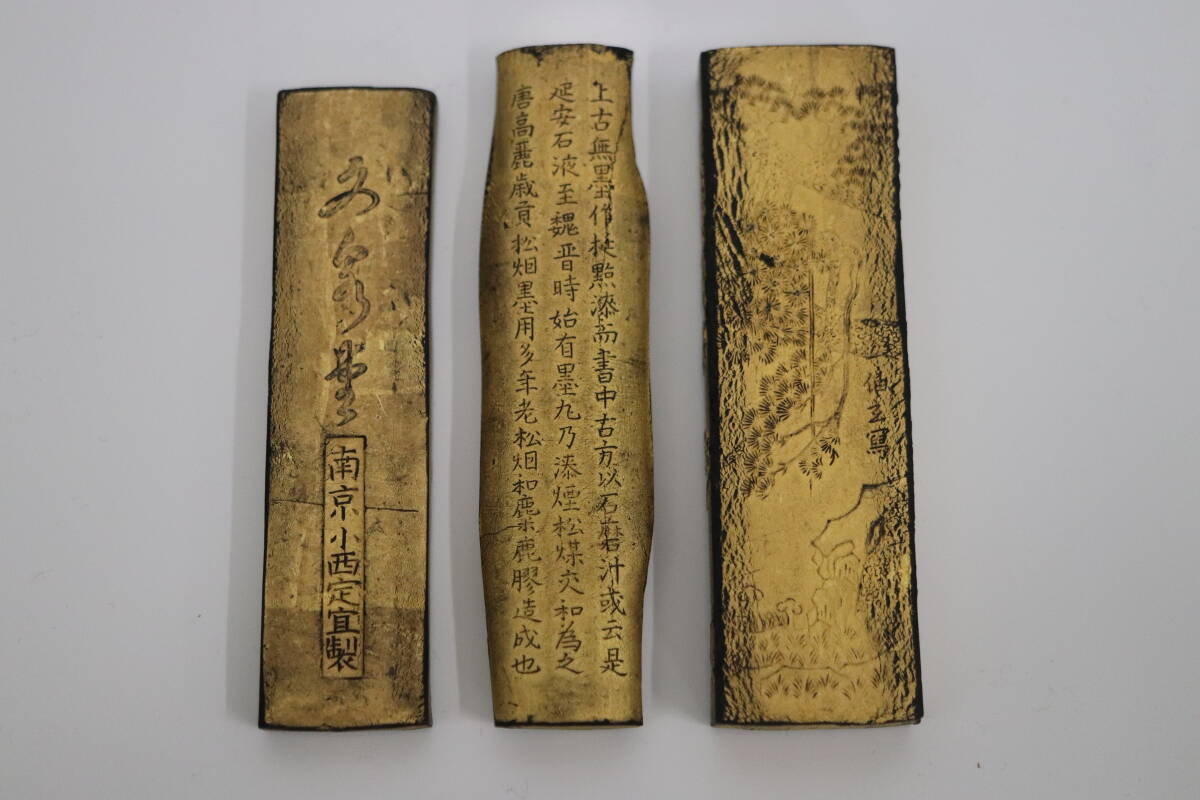 南京小西定宜製
上古無墨竹梃點漆而書中古方以石磨汁或云是
延安石液至魏晉時始有墨丸乃漆煙松煤夾和為之
唐高麗歳貢松烟墨用多年老松烟和麋鹿膠造成也
伯玄寫